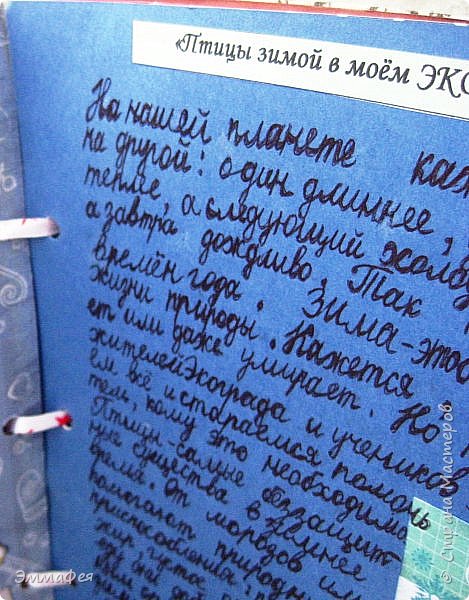 «Птицы зимой в моём ЭКО
На нашей планете каж
на другой: один длиннее,
теплее, а следующий холод
а завтра дождливо. Так
времён года. Зима-это
жизни природы. Кажется
ет или даже умирает. Но
жителей Экограда и ученика
ем всё и стараемся помочь
тем, кому это необходимо
Птицы самые беззащит
ные существа в зимнее
время. От морозов им
помогают природн
приспособления:
жир, густо
© Страна Мастеров
ЭммаФея